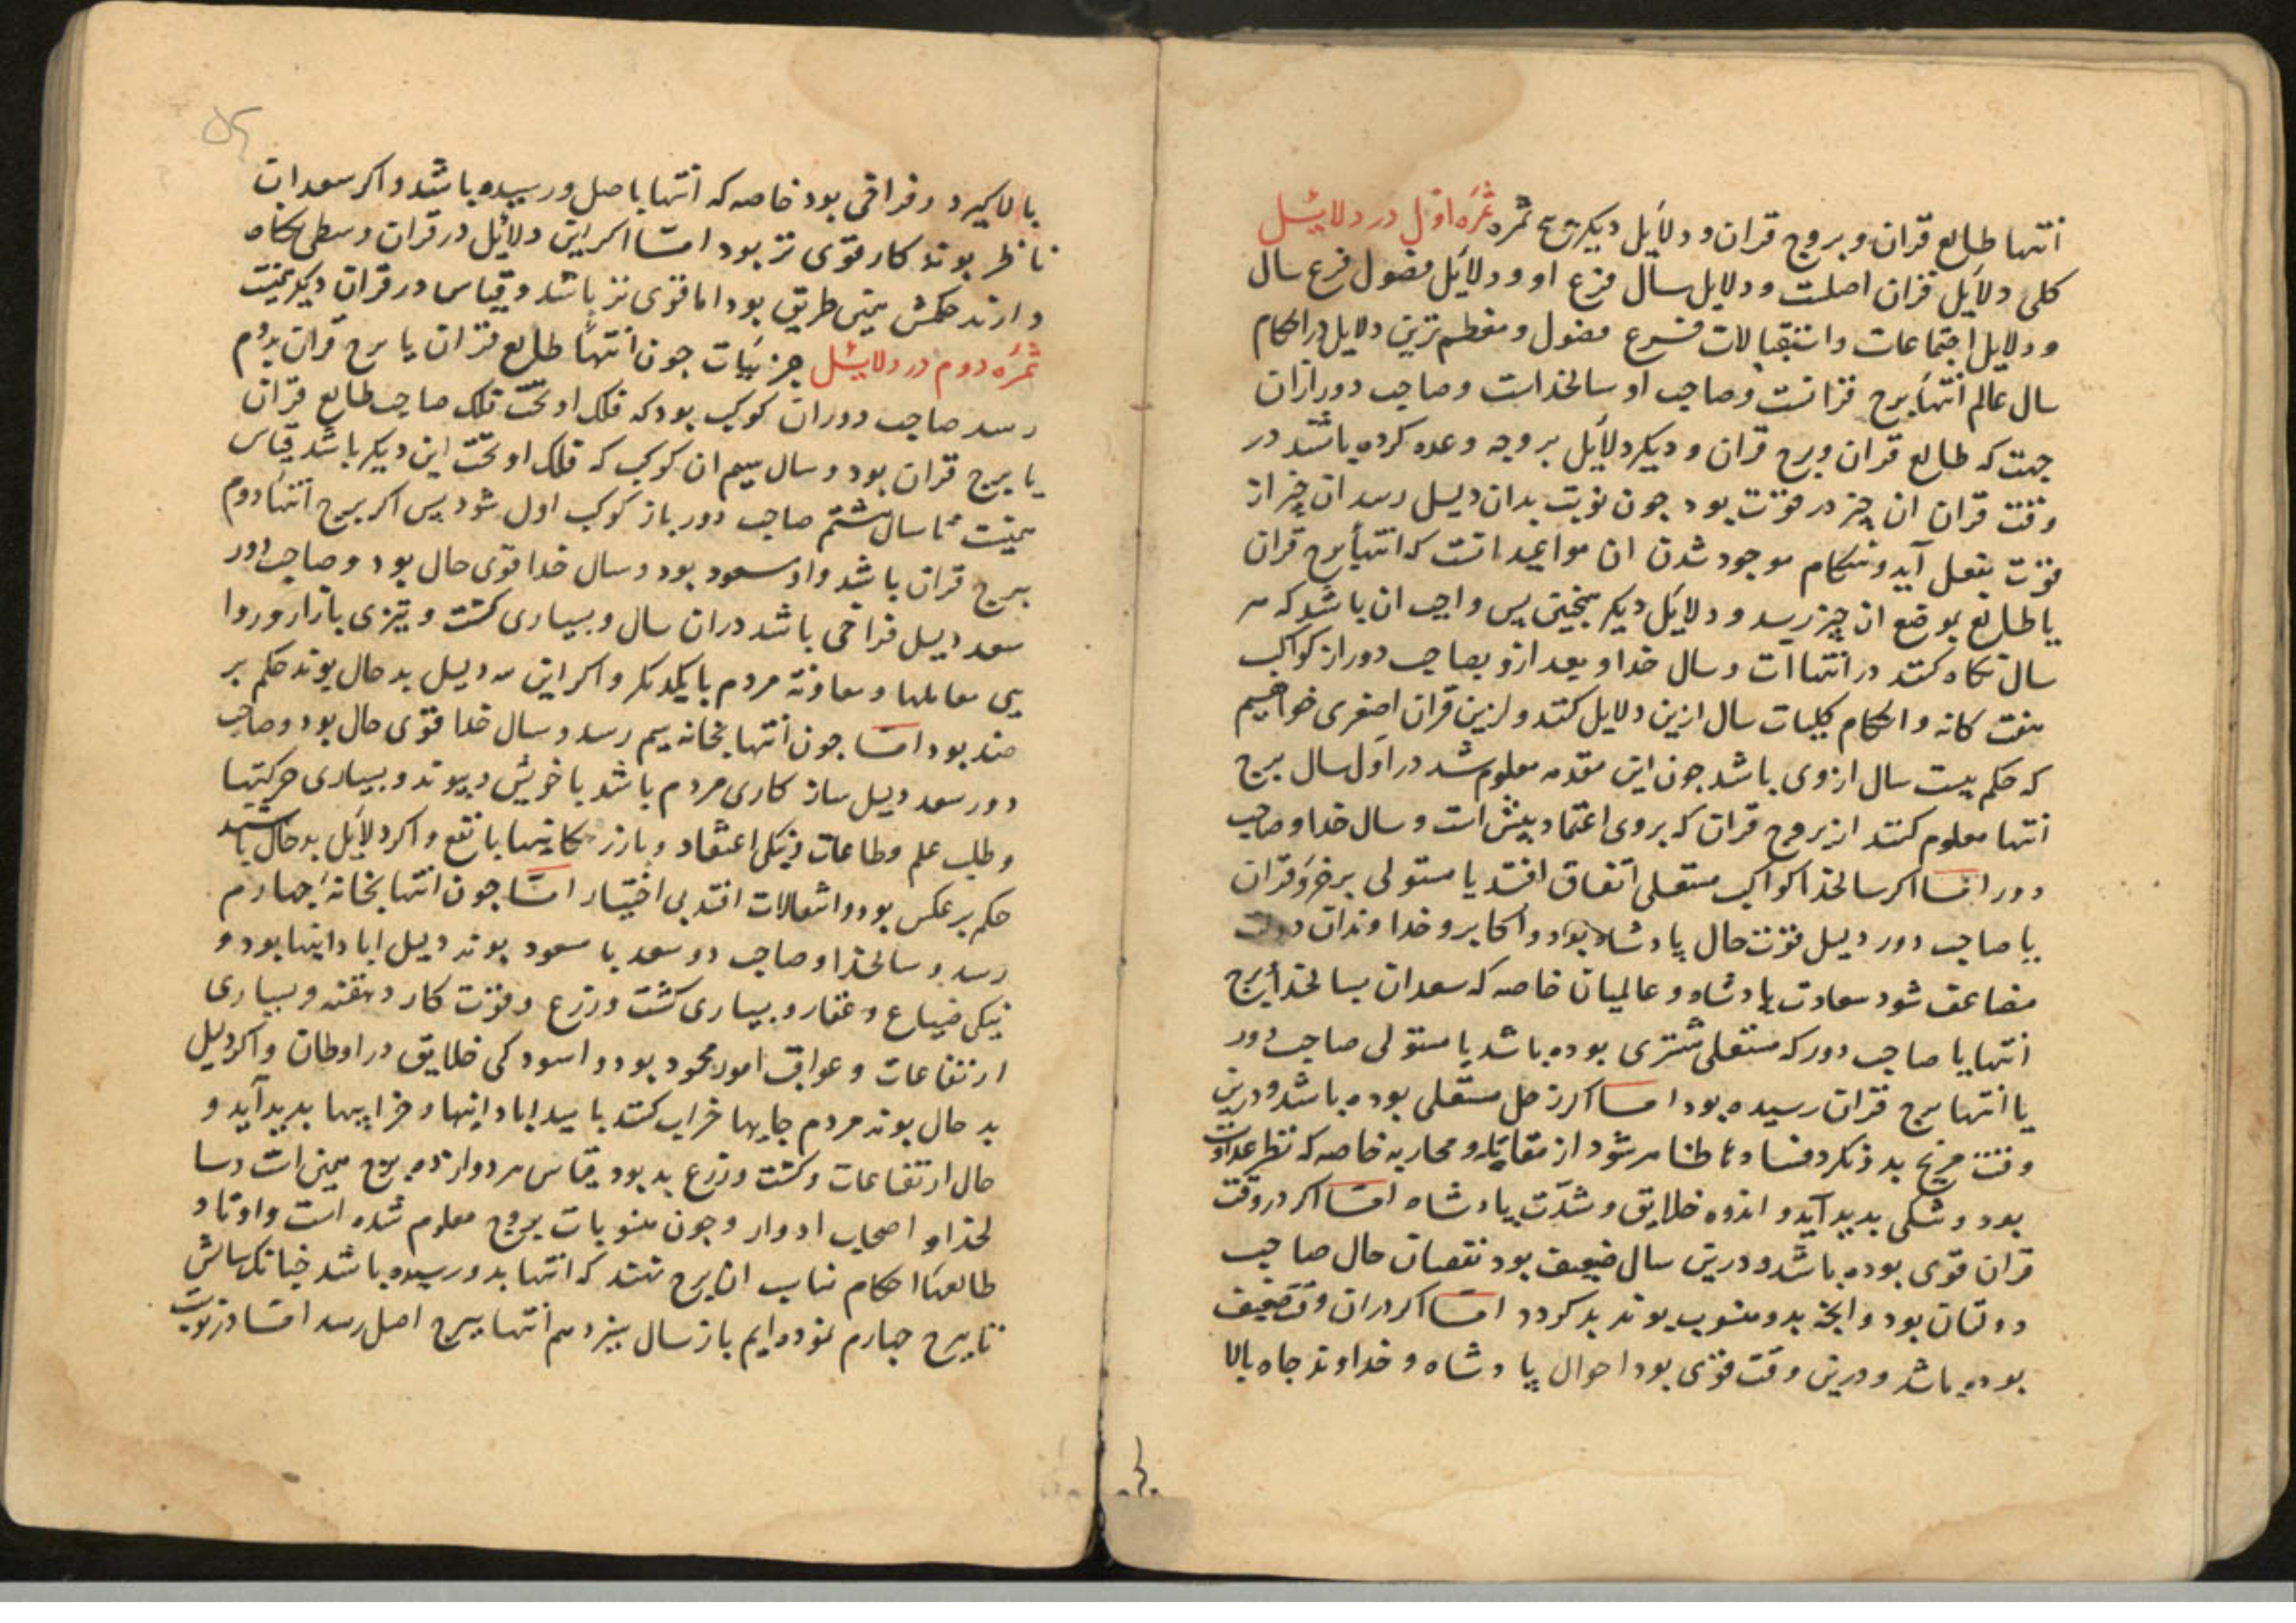 انتها طالع قران و بروج قران و دلایل دیکر پنج ثمره ثمره اول در دلایل
کلی دلایل قران اصلست و دلایل سال فرع او و دلایل فصول فرع سال
و دلایل اجتماعات و استقبالات فرع فصول و معظم ترین دلایل در احکام
سال عالم انتهاء برج قرانست و صاحب او سالخداست و صاحب دور ازان
جهت که طالع قران و برج قران و دیکر دلایل بر وجه وعده کرده باشند در
وقت قران ان چیز در قوت بود جون نوبت بدان دلیل رسد ان چیز از
قوت بفعل آید و هنکام موجود شدن ان مواعید انست که انتهاء برج قران
یا طالع بموضع ان چیز رسد و دلایل دیکر همچنین پس واجب ان باشد که هر
سال نکاه کنند در انتهاات و سال خدا و بعد ازو بصاحب دور از کواکب
هفت کانه و احکام کلیات سال ازین دلایل کنند و ازین قران اصغری خواهیم
که حکم بیست سال ازوی باشد جون این مقدمه معلوم شد در اول سال برج
انتها معلوم کنند از بروج قران که بروی اعتماد بیش است و سال خدا و صاحب
دور اما اکر سالخدا کواکب مستعلی اتفاق افتد یا مستولی بر جزو قران
یا صاحب دور دلیل قوت حال پادشاه بود و اکابر و خداوندان دولت
مضاعف شود سعادت پادشاه و عالمیان خاصه که سعدان بسالخدا برج
انتها یا صاحب دور که مستعلی مشتری بوده باشد یا مستولی صاحب دور
یا انتها برج قران رسیده بود اما اکر زحل مستعلی بوده باشد و درین
وقت مریخ بد نکرد فسادها ظاهر شود از مقاتله و محاربه خاصه که نظر عداوت
بود و تنکی بدید آید و اندوه خلایق و شدت پادشاه اما اکر در وقت
قران قوی بوده باشد و درین سال ضعیف بود نقصان حال صاحب
دولتان بود و انچه بدو منسوب بوند بد کردد اما اکر دران وقت ضعیف
بوده باشد و درین وقت قوی بود احوال پادشاه و خداوند جاه بالا
بالا کیرد و فراخی بود خاصه که انتها باصل و رسیده باشد و اکر سعدان
ناظر بوند کار قوی تر بود اما اکر این دلایل در قران وسطی نکاه
دارند حکمش همین طریق بود اما قوی تر باشد و قیاس در قران دیکر همینست
ثمره دوم در دلایل جزئیات جون انتهاء طالع قران یا برج قران بدوم
رسد صاحب دوران کوکب بود که فلک او تحت فلک صاحب طالع قران
یا برج قران بود و سال سیم ان کوکب که فلک او تحت این دیکر باشد قیاس
همینست تا سال هشتم صاحب دور باز کوکب اول شود پس اکر برج انتهاء دوم
برج قران باشد و او مسعود بود و سال خدا قوی حال بود و صاحب دور
سعد دلیل فراخی باشد دران سال و بسیاری کشت و تیزی بازار و روا
یی معاملها و معاونه مردم با یکدیکر و اکر این سه دلیل بد حال بوند حکم بر
ضد بود اما جون انتها بخانه سیم رسد و سال خدا قوی حال بود و صاحب
دور سعد دلیل سازکاری مردم باشد با خویش و پیوند و بسیاری حرکتها
و طلب علم و طاعات و نیکی اعتقاد و بازرکانیها با نفع و اکر دلایل بد حال باشند
حکم بر عکس بود و انتقالات افتد بی اختیار اما جون انتها بخانه چهارم
رسد و سالخدا و صاحب دور سعد یا مسعود بوند دلیل ابادانیها بود و
نیکی ضیاع و عقار و بسیاری کشت و زرع و قوت کار دهقنه و بسیاری
ارتفاعات و عواقب امور محمود بود و اسودکی خلایق در اوطان و اکر دلیل
بد حال بوند مردم جایها خراب کنند بامید ابادانیها و خرابیها بدید آید و
حال ارتفاعات و کشت و زرع بد بود قیاس هر دوازده برج همین است و سا
لخداو اصحاب ادوار و جون منسوبات بروج معلوم شده است و اوتاد
طالعها احکام مناسب ان برج کنند که انتها بدو رسیده باشد چنانک سالش
تا برج چهارم نموده ایم باز سال سیزدهم انتها ببرج اصل رسد اما در نوبت